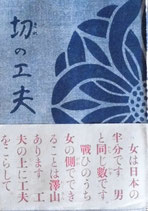 切の工夫
女は日本の
半分です 男
と同じ数です
戰ひのうち
女の側ででき
ることは澤山
あります 工
夫の上に工夫
をこらして